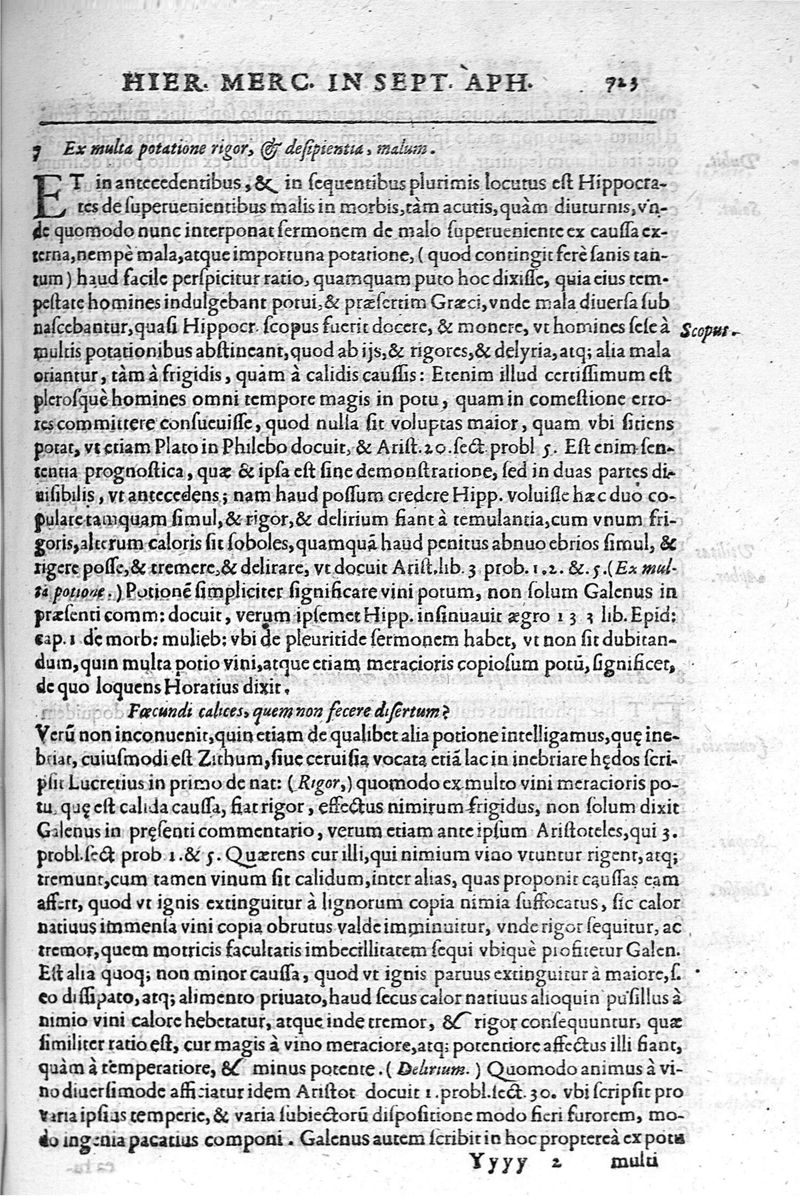 HIER. MERC. IN SEPT. APH. 723
7 Ex multa potatione rigor, & desipientia, malum.
ET in antecedentibus, & in sequentibus plurimis locutus est Hippocra-
tes de superuenientibus malis in morbis, tàm acutis, quàm diuturnis, vn-
de quomodo nunc interponat sermonem de malo superueniente ex caussa ex-
terna, nempè mala, atque importuna potatione, (quod contingit ferè sanis tan-
tum) haud facile perspicitur ratio, quamquam puto hoc dixisse, quia eius tem-
pestate homines indulgebant potui, & præsertim Græci, vnde mala diuersa sub
nascebantur, quasi Hippocr. scopus fuerit docere, & monere, vt homines sese à
Scopus.
multis potationibus abstineant, quod ab ijs, & rigores, & delyria, atq; alia mala
oriantur, tàm à frigidis, quàm à calidis caussis: Etenim illud certissimum est
plerosquè homines omni tempore magis in potu, quam in comestione erro-
res committere consueuisse, quod nulla sit voluptas maior, quam vbi sitiens
potat, vt etiam Plato in Philebo docuit, & Arist. 20. sect. probl 5. Est enim sen-
tentia prognostica, quæ & ipsa est sine demonstratione, sed in duas partes di-
uisibilis, vt antecedens; nam haud possum credere Hipp. voluisse hæc duo co-
pulare tamquam simul, & rigor, & delirium fiant à temulantia, cum vnum fri-
goris, alterum caloris sit soboles, quamquã haud penitus abnuo ebrios simul, &
rigere posse, & tremere, & delirare, vt docuit Arist. lib. 3 prob. 1. 2. & . 5. (Ex mul-
ta potione.) Potionẽ simpliciter significare vini potum, non solum Galenus in
præsenti comm: docuit, verum ipsemet Hipp. insinuauit ægro 13 3 lib. Epid:
cap. 1 de morb: mulieb: vbi de pleuritide sermonem habet, vt non sit dubitan-
dum, quin multa potio vini, atque etiam meracioris copiosum potũ, significet,
de quo loquens Horatius dixit.
Fœcundi calices, quem non fecere disertum?
Verũ non inconuenit, quin etiam de qualibet alia potione intelligamus, quę ine-
briat, cuiusmodi est Zithum, siue ceruisia vocata etiã lac in inebriare hędos scri-
psit Lucretius in primo de nat: (Rigor,) quomodo ex multo vini meracioris po-
tu, quę est calida caussa, fiat rigor, effectus nimirum frigidus, non solum dixit
Galenus in pręsenti commentario, verum etiam ante ipsum Aristoteles, qui 3.
probl. sect prob 1. & 5. Quærens cur illi, qui nimium vino vtuntur rigent, atq;
tremunt, cum tamen vinum sit calidum, inter alias, quas proponit caussas eam
affert, quod vt ignis extinguitur à lignorum copia nimia suffocatus, sic calor
natiuus immensa vini copia obrutus valde imminuitur, vnde rigor sequitur, ac
tremor, quem motricis facultatis imbecillitatem sequi vbiquè profitetur Galen.
Est alia quoq; non minor caussa, quod vt ignis paruus extinguitur à maiore, s.
eo dissipato, atq; alimento priuato, haud secus calor natiuus alioquin pusillus à
nimio vini calore hebetatur, atque inde tremor, & rigor consequuntur, quæ
similiter ratio est, cur magis à vino meraciore, atq; potentiore affectus illi fiant,
quàm à temperatiore, & minus potente. (Delirium.) Quomodo animus à vi-
no diuersimode afficiatur idem Aristot docuit 1. probl. sect. 30. vbi scripsit pro
varia ipsius temperie, & varia subiectorũ dispositione modo fieri furorem, mo-
do ingenia pacatius componi. Galenus autem scribit in hoc proptereà ex potu
Yyyy 2 multi